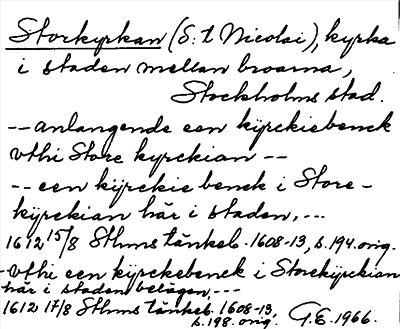 Storkyrkan (S:t Nicolai), kyrka
i staden mellan broarna,
Stockholms stad.
-- anlangende een kÿrckiebenck
vthi Store kyrckian --
-- een kÿrckie benck i Store-
kÿrckian här i staden, ---
1612 15/8 Sthms tänkeb. 1608-13, s. 194. orig.
- vthi een kÿrckebenck i Storekÿrckian
här i staden belägen, ---
1612 17/8 Sthms tänkeb. 1608-13,
s. 198. orig. G.E. 1966.